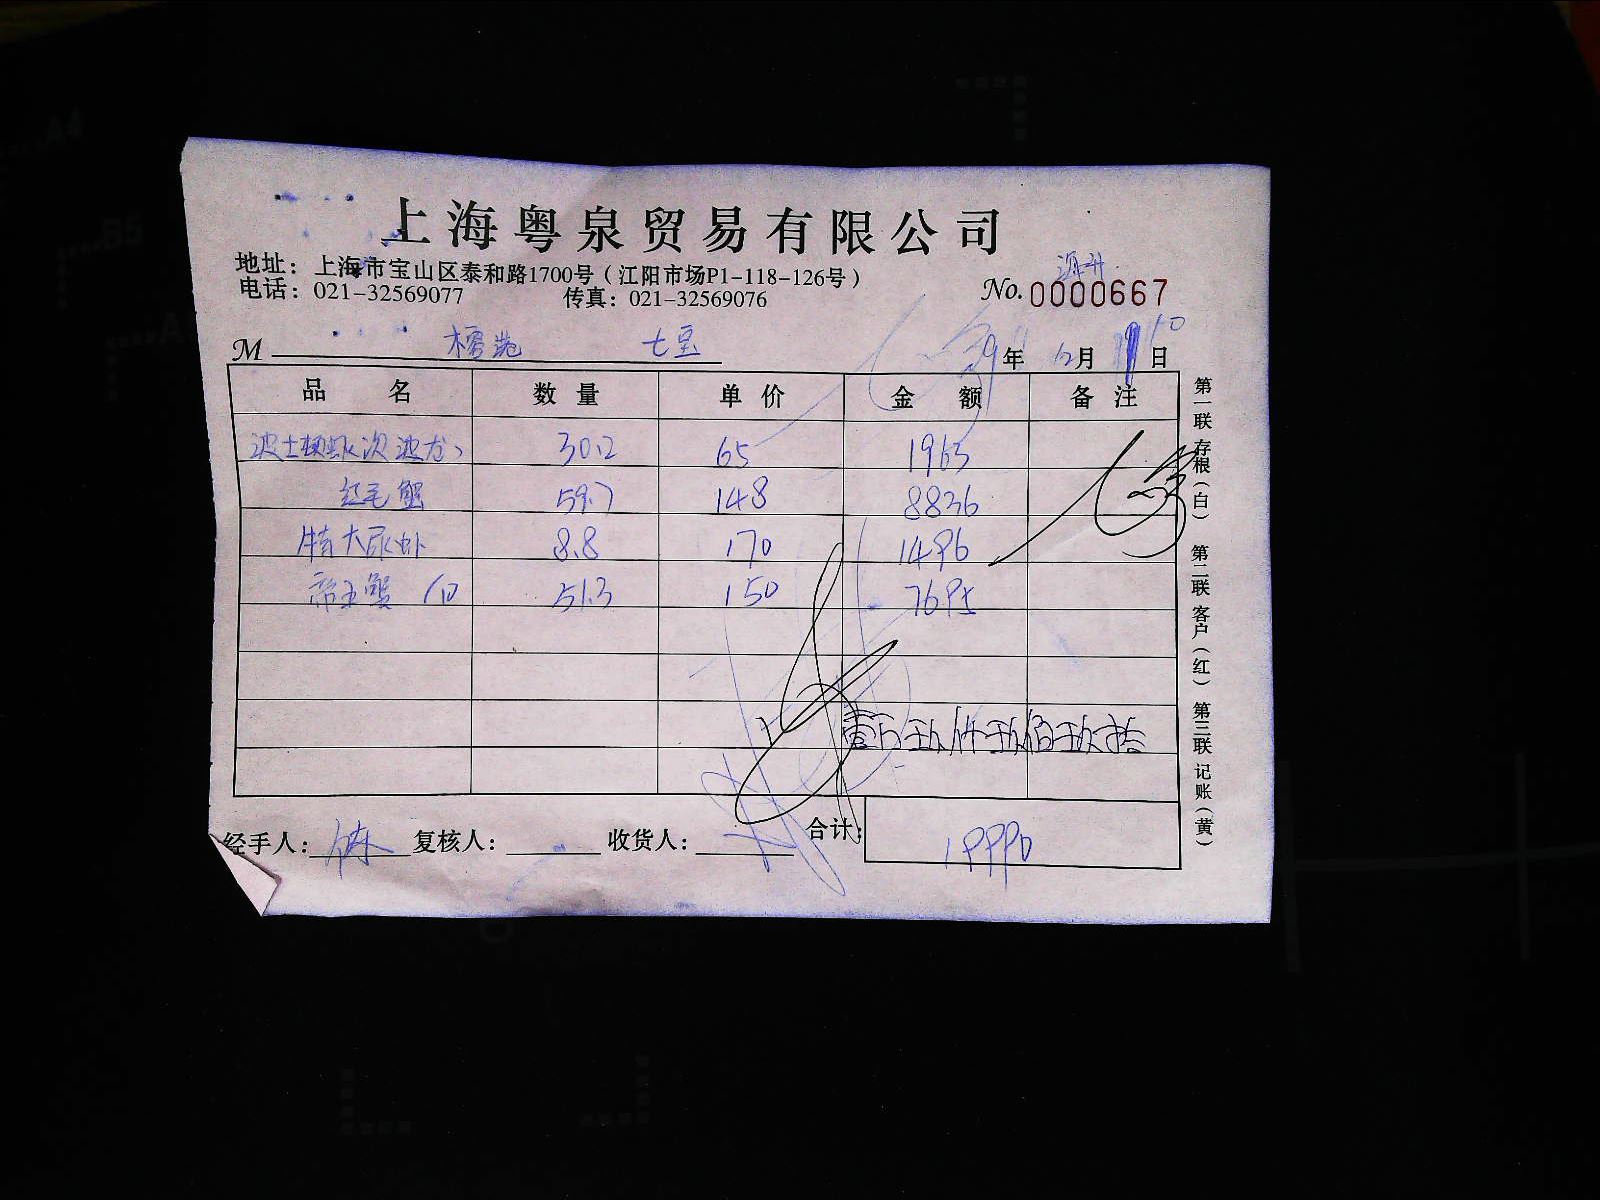 上海粤泉贸易有限公司
地址：上海市宝山区泰和路1700号（江阳市场P1-118-126号）
电话：021-32569077 传真：021-32569076
No. 0000667
M
9年 12月 10日
品名 数量 单价 金额 备注
波士顿 次波龙 30.2 65 1963
红毛蟹 59.7 148 8836
特大尿虾 8.8 170 1496
帝王蟹 50.3 150 7695
壹万玖仟玖佰玖拾
经手人： 复核人： 收货人： 合计： 19990
第一联 存根（白） 第二联 客户（红） 第三联 记账（黄）